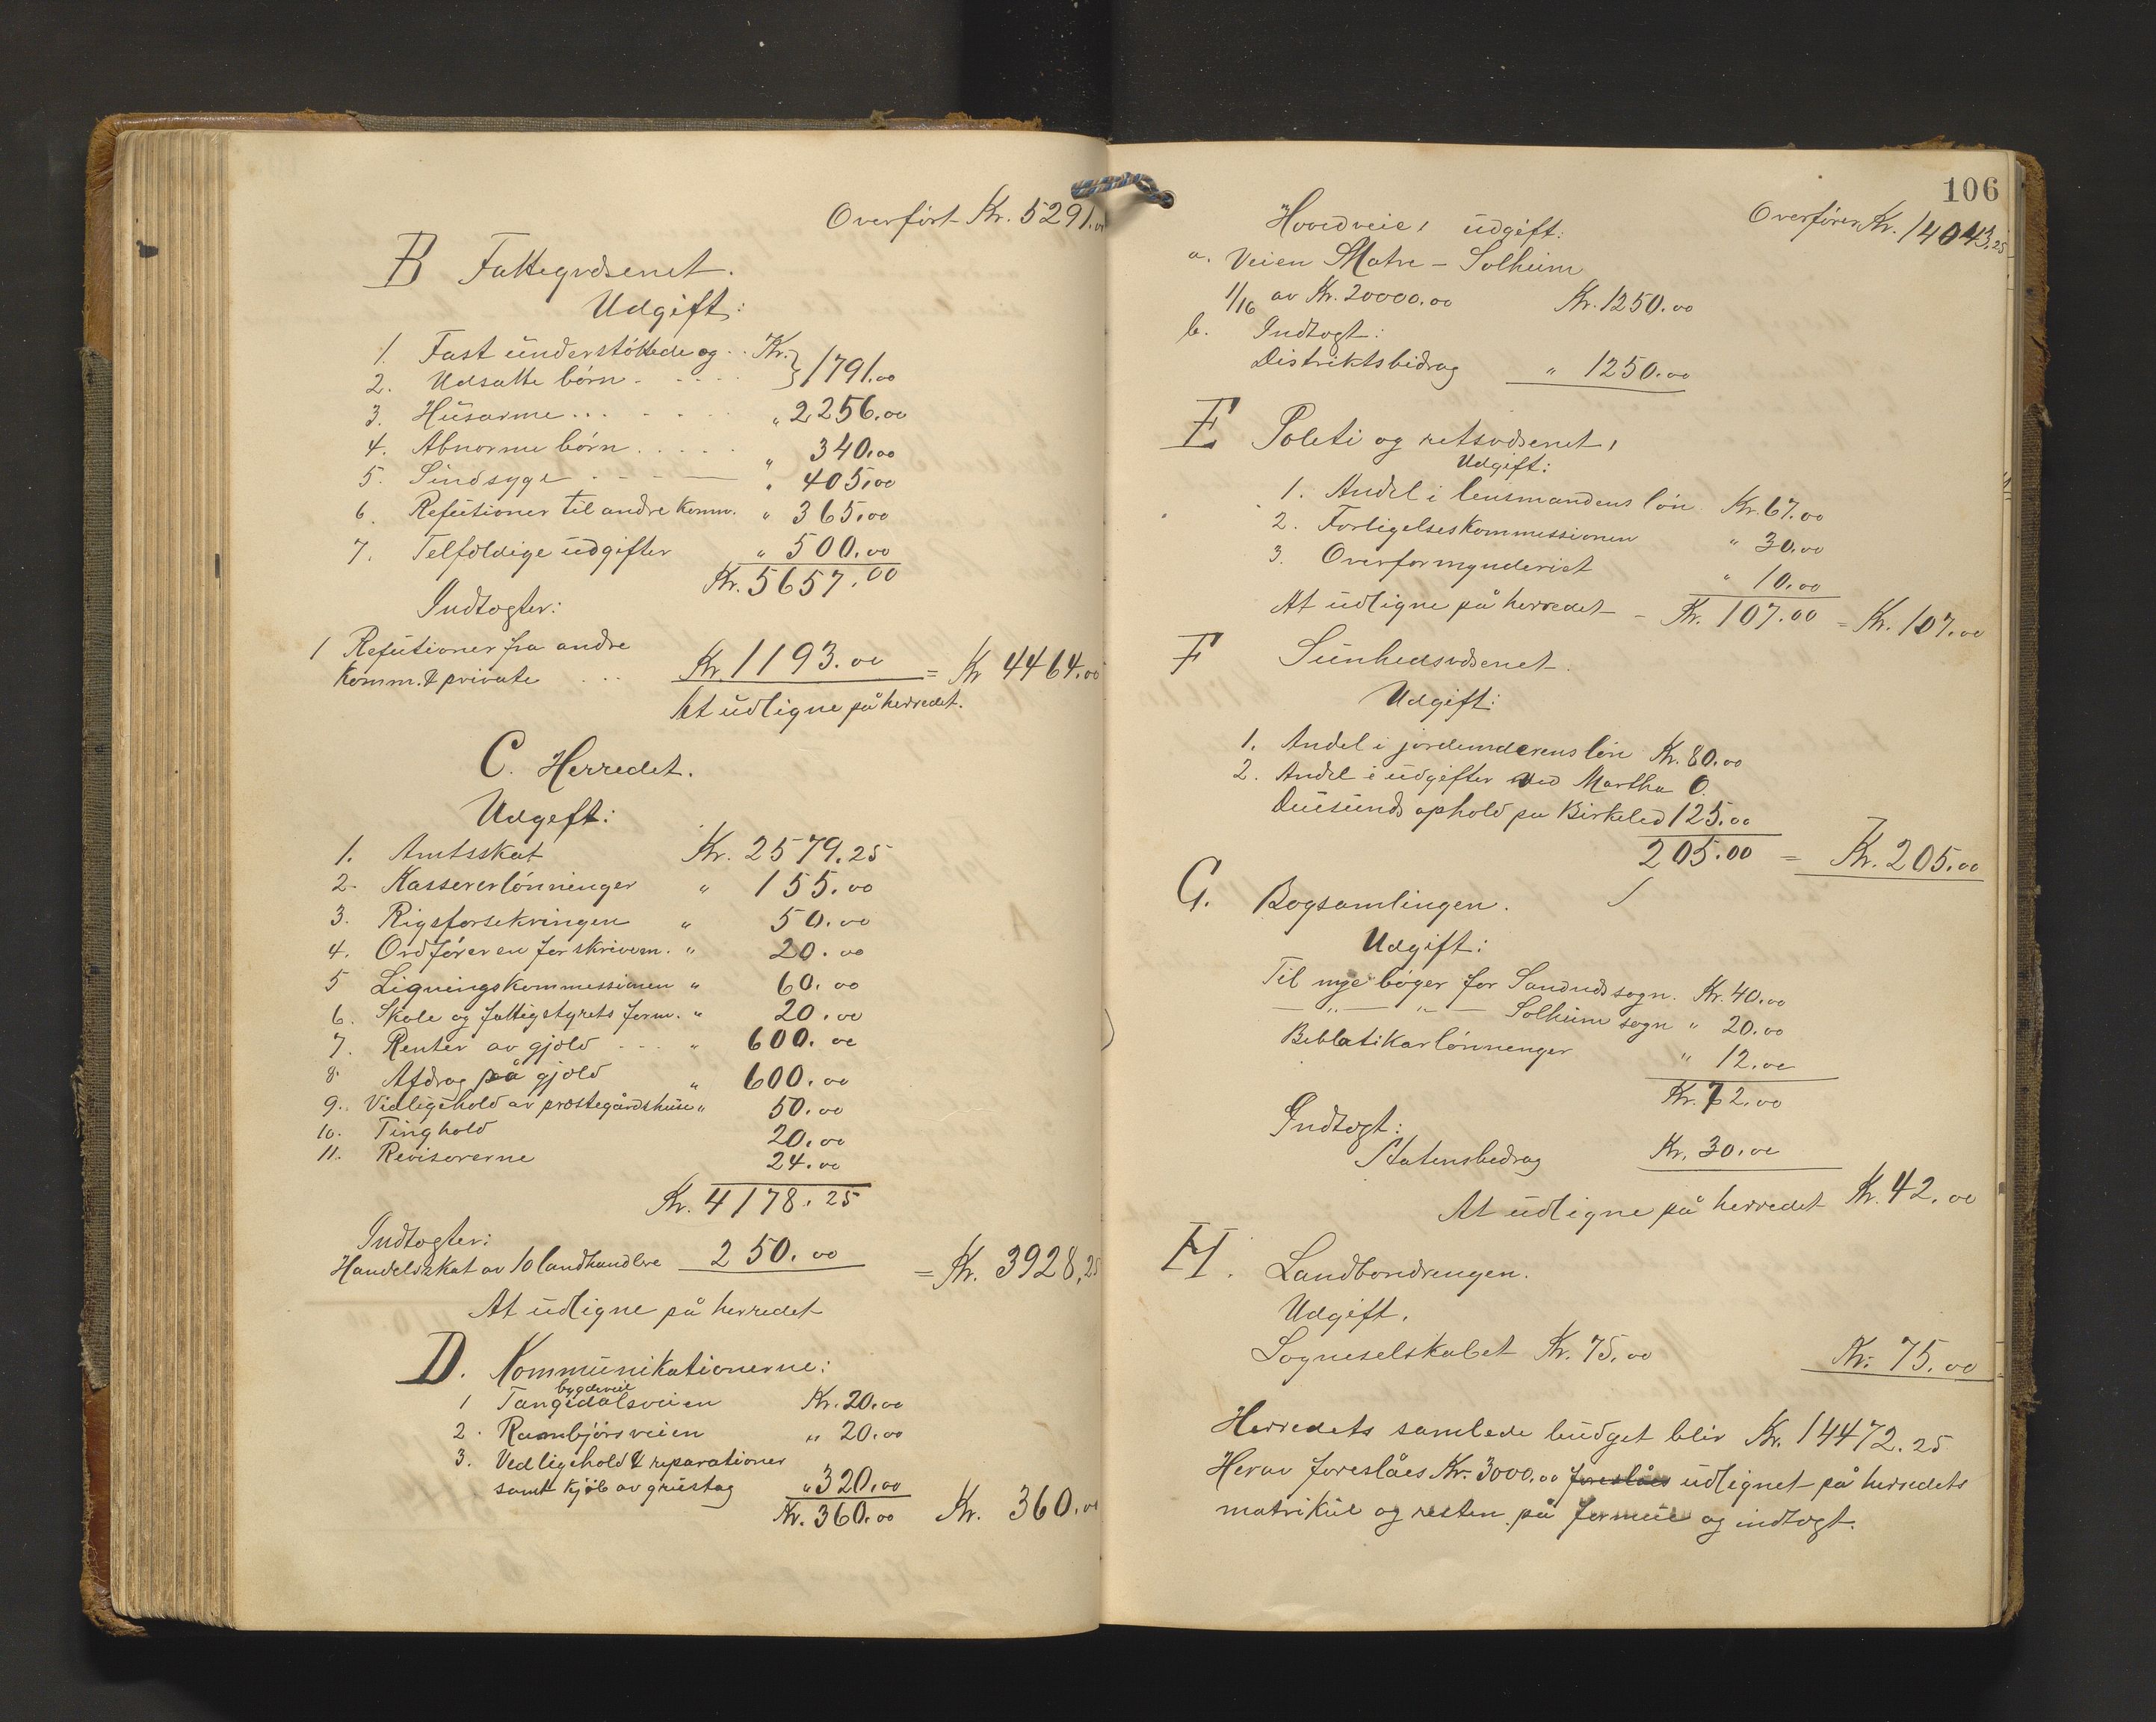 Overført Kr. 5291.00
B Fattegvdsenet.
Udgift:
1. Fast understøttede og .. Kr. } 1791.00
2. Udsatte børn . . . . .
3. Husarme . . . " 2256.00
4. Abnorme børn . . . . . " 340.00
5. Sindsyge . . . " 405.00
6. Refutioner til andre komm. " 365.00
7. Telfoldige udgifter " 500.00
Kr. 5657.00
Indtogter:
1 Refutioner fra andre
Komm. & private . . . Kr. 1193.00 = Kr 4464.00
At udligne på herredet.
C. Herredet.
Udgeft:
1. Amtsskat Kr. 2579.25
2. Kassererlønninger " 155.00
3. Rigsforsekringen " 50.00
4. Ordføreren for skrivem. " 20.00
5 Ligningskommessionen " 60.00
6. Skole og fattigstyrets form. " 20.00
7. Renter av gjæld . . . " 600.00
8. Afdrag på gjæld " 600.00
9. Vedligehold av prostegårdshuse " 50.00
10. Tinghold 20.00
11. Revisorerne 24.00
Kr. 4178.25
Indtogter:
Handelsskat av 10 landhandlere 250.00 = Kr. 3928,25
At udligne på herredet
D. Kommunikationerne:
bygdeveie
1 Tangedalsveien Kr. 20.00
2. Rambjørsveien " 20.00
3. Vedligehold & reparationer
samt kjøb av grustag " 320.00
Kr. 360.00 Kr. 360.00
106
Overføres Kr. 14043.25
Hovedveie, udgift:
a. Veien Matre - Solheim
1/16 av Kr. 20000.00 Kr. 1250.00
b. Indtogt:
Distriktsbidrag " 1250.00
E Poleti og retsvdsenet,
Udgift:
1. Andel i lensmandens løn Kr. 67.00
2. Forligelseskommessionen " 30.00
3. Overformynderiet " 10.00
At udligne på herredet - Kr. 107.00 = Kr. 107.00
F Sunhedsvdsenet.
Udgift:
1. Andel i jordemderens løn Kr. 80.00
2. Andel i udgifter ved Martha O.
Duesunds ophold pa Birkeled 125.00
205.00 = Kr. 205.00
G. Bogsamlingen.
Udgift:
Til nye bøger for Sandnds sogn. Kr. 40.00
— " — " — Solheim sogn " 20.00
Beblatikarlønnenger " 12.00
Kr. 72.00
Indtogt:
Statensbedrag Kr. 30.00
At udligne på herredet Kr. 42.00
H. Landbondrengen.
Udgift.
Sogneselskabet Kr. 75.00 Kr. 75.00
Herredets samlede budget blir Kr. 14472.25
Herav foreslåes Kr. 3000.00 foreslåes udlignet på herredets
matrikul og resten på formue og indtogt.